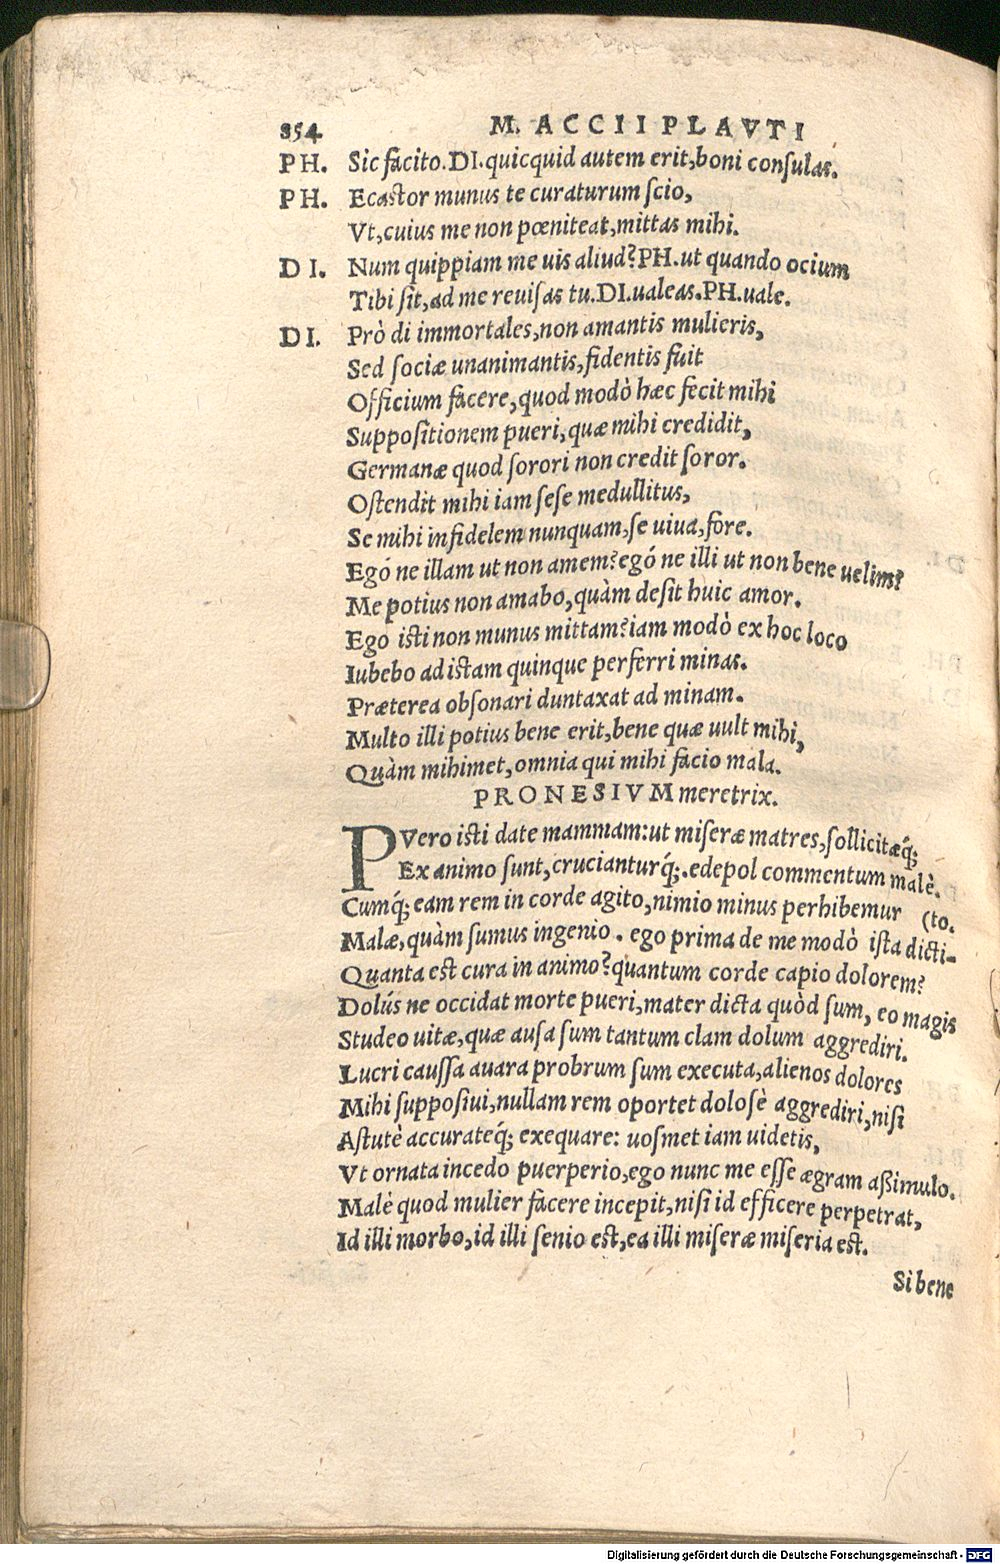 854 M. ACCII PLAVTI
PH. Sic facito. DI. quicquid autem erit, boni conſulas.
PH. Ecaſtor munus te curaturum ſcio,
Vt, cuius me non pœniteat, mittas mihi.
DI. Num quippiam me uis aliud? PH. ut quando ocium
Tibi ſit, ad me reuiſas tu. DI. ualeas. PH. uale.
DI. Prò di immortales, non amantis mulieris,
Sed ſociæ unanimantis, fidentis fuit
Officium facere, quod modò hæc fecit mihi
Suppoſitionem pueri, quæ mihi credidit,
Germanæ quod ſorori non credit ſoror.
Oſtendit mihi iam ſeſe medullitus,
Se mihi infidelem nunquam, ſe uiua, fore.
Egó ne illam ut non amem? egó ne illi ut non bene uelim?
Me potius non amabo, quàm deſit huic amor.
Ego iſti non munus mittam? iam modò ex hoc loco
Iubebo ad iſtam quinque perferri minas.
Præterea obſonari duntaxat ad minam.
Multo illi potius bene erit, bene quæ uult mihi,
Quàm mihimet, omnia qui mihi facio mala.
PRONESIVM meretrix.
PVero iſti date mammam: ut miſeræ matres, ſollicitæq́;
Ex animo ſunt, cruciantur q́;. edepol commentum malè.
Cumq́; eam rem in corde agito, nimio minus perhibemur (to.
Malæ, quàm ſumus ingenio. ego prima de me modò iſta dicti-
Quanta eſt cura in animo? quantum corde capio dolorem?
Dolús ne occidat morte pueri, mater dicta quòd ſum, eo magis
Studeo uitæ, quæ auſa ſum tantum clam dolum aggrediri.
Lucri cauſſa auara probrum ſum executa, alienos dolores
Mihi ſuppoſiui, nullam rem oportet doloſè aggrediri, niſi
Aſtutè accurateq́; exequare: uoſmet iam uidetis,
Vt ornata incedo puerperio, ego nunc me eſſe ægram aßimulo.
Malè quod mulier facere incepit, niſi id efficere perpetrat,
Id illi morbo, id illi ſenio eſt, ea illi miſeræ miſeria eſt.
Si bene
Digitalisierung gefördert durch die Deutsche Forschungsgemeinschaft - DFG